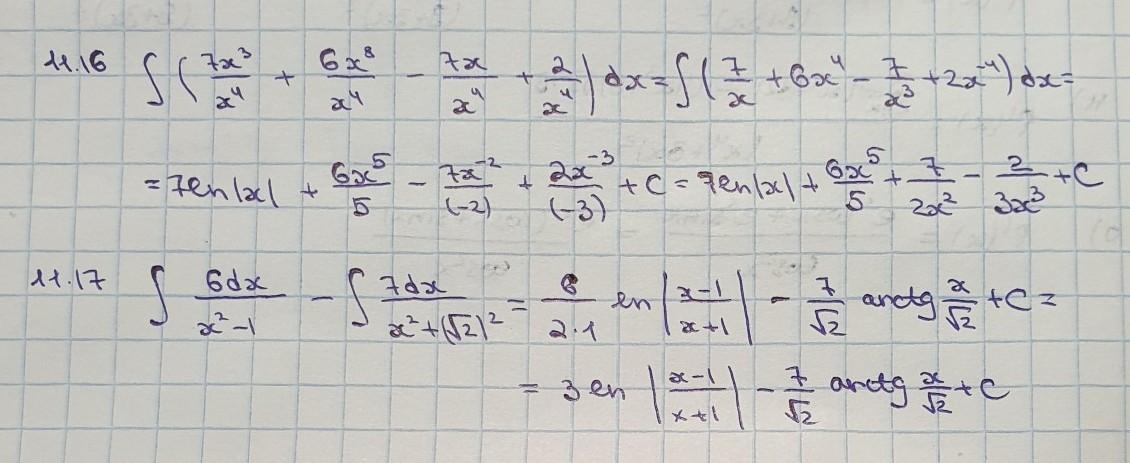 11.16 ∫ ( 7x³/x⁴ + 6x⁸/x⁴ − 7x/x⁴ + 2/x⁴ ) dx = ∫ ( 7/x + 6x⁴ − 7/x³ + 2x⁻⁴ ) dx =
= 7ln|x| + 6x⁵/5 − 7x⁻²/(-2) + 2x⁻³/(-3) + C = 7ln|x| + 6x⁵/5 + 7/2x² − 2/3x³ + C
11.17 ∫ 6dx/x²−1 − ∫ 7dx/x²+(√2)² = 6/2·1 ln |x−1/x+1| − 7/√2 arctg x/√2 + C =
= 3 ln |x−1/x+1| − 7/√2 arctg x/√2 + C